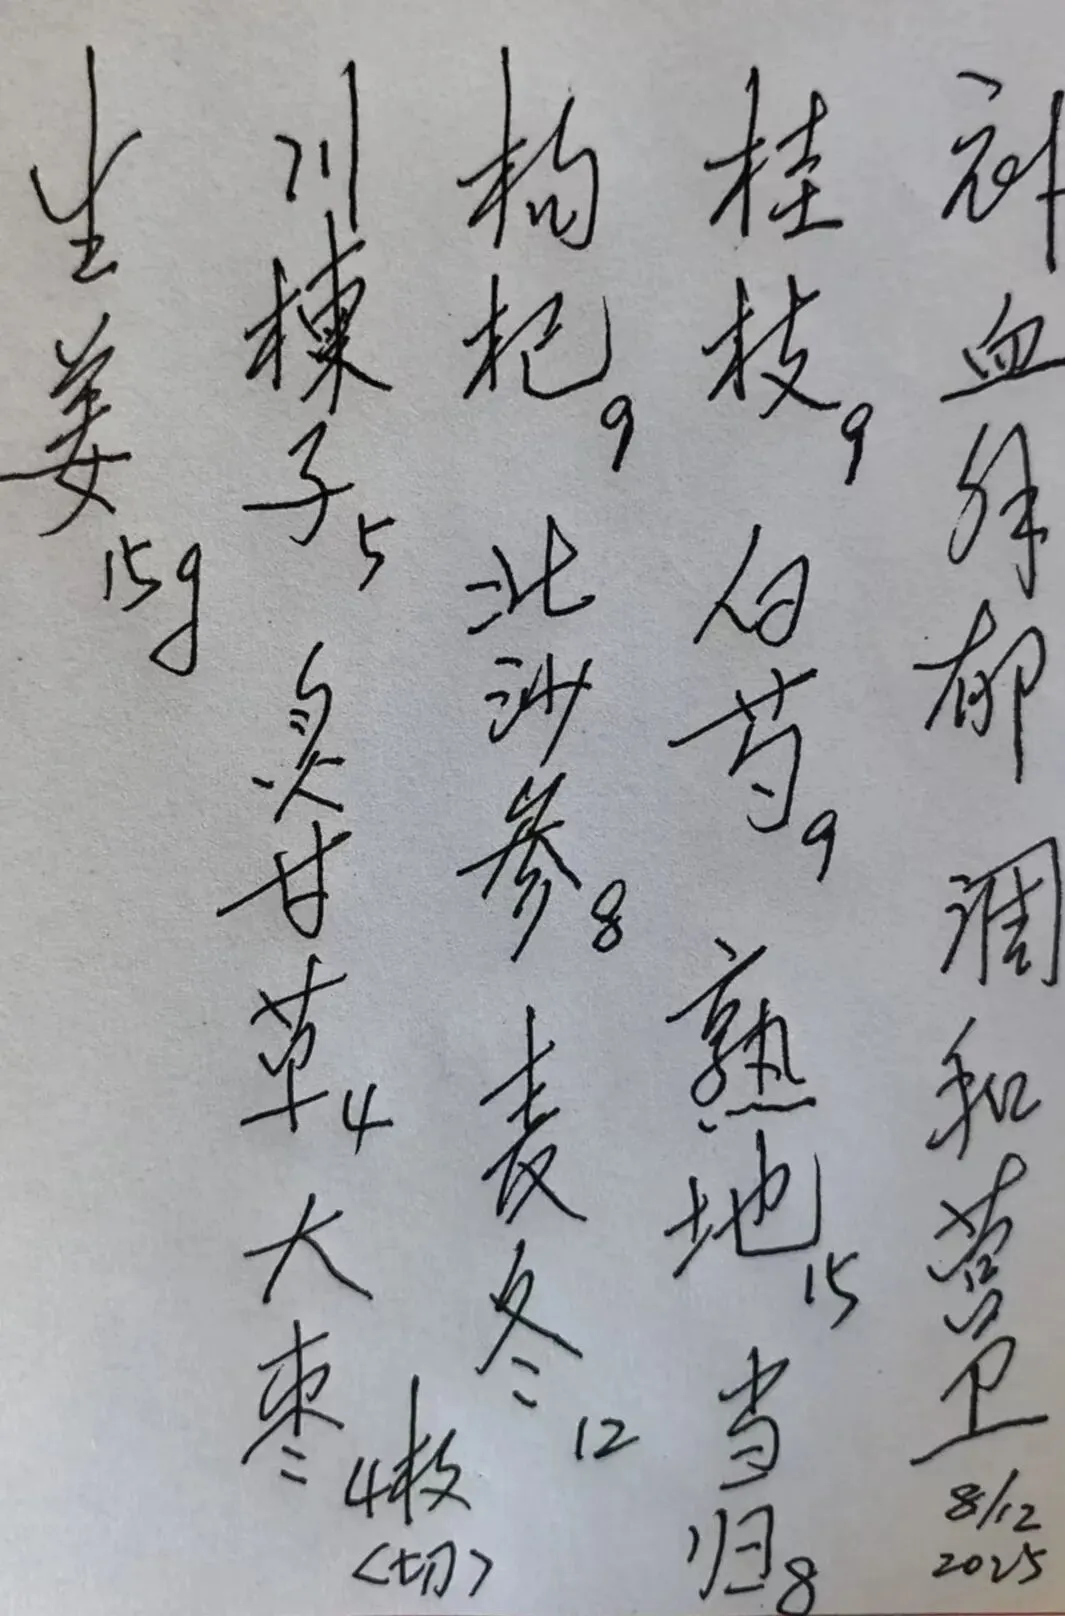 补血解郁 调和营卫
8/12
2025
桂枝9 白芍9 熟地15 当归8
枸杞9 北沙参8 麦冬12
川楝子5 炙甘草4 大枣4枚
<切>
生姜15g